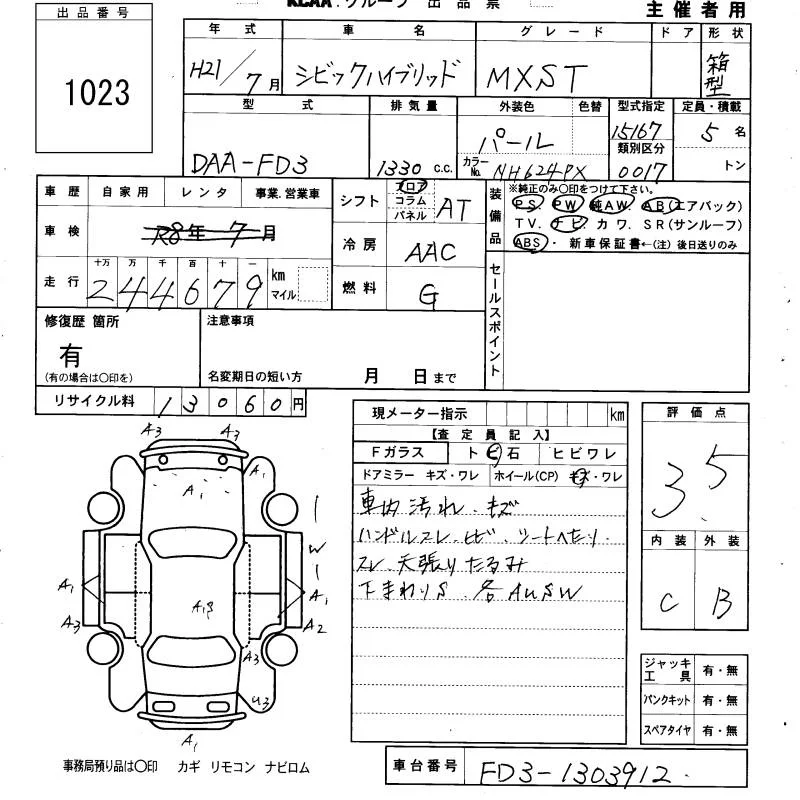 KCAA.グループ 出品票
主催者用
出品番号
1023
年式 車名 グレード ドア 形状
H21/7月 シビックハイブリッド MXST 箱型
型式 排気量 外装色 色替 型式指定 定員・積載
DAA-FD3 1330 c.c. パール 15167 5名
カラーNo. NH624PX 類別区分 0017 トン
車歴 自家用 レンタ 事業.営業車
車検 R8年7月
走行 十万 万 千 百 十 一
244679 km マイル
シフト フロア コラム パネル AT
冷房 AAC
燃料 G
装備品 ※純正のみ〇印をつけて下さい。
PS. PW. 純AW. AB(エアバック)
TV. ナビ・カワ. SR(サンルーフ)
ABS・ 新車保証書←(注)後日送りのみ
セールスポイント
修復歴 箇所
有
(有の場合は〇印を)
注意事項
名変期日の短い方 月 日まで
リサイクル料 13060円
現メーター指示 km
【査定員記入】
Fガラス ト ビ 石 ヒビワレ
ドアミラー キズ・ワレ ホイール(CP) キズ・ワレ
車内汚れ.キズ
ハンドルスレ.ヒビ.シートへたり.
スレ.天張りたるみ
下まわりS.各AUSW
評価点
3.5
内装 外装
C B
A3 A3
A1 A1
W
A1 A1
A3 A2
A3
U3
A1
ジャッキ工具 有・無
パンクキット 有・無
スペアタイヤ 有・無
事務局預り品は〇印 カギ リモコン ナビロム
車台番号 FD3-1303912